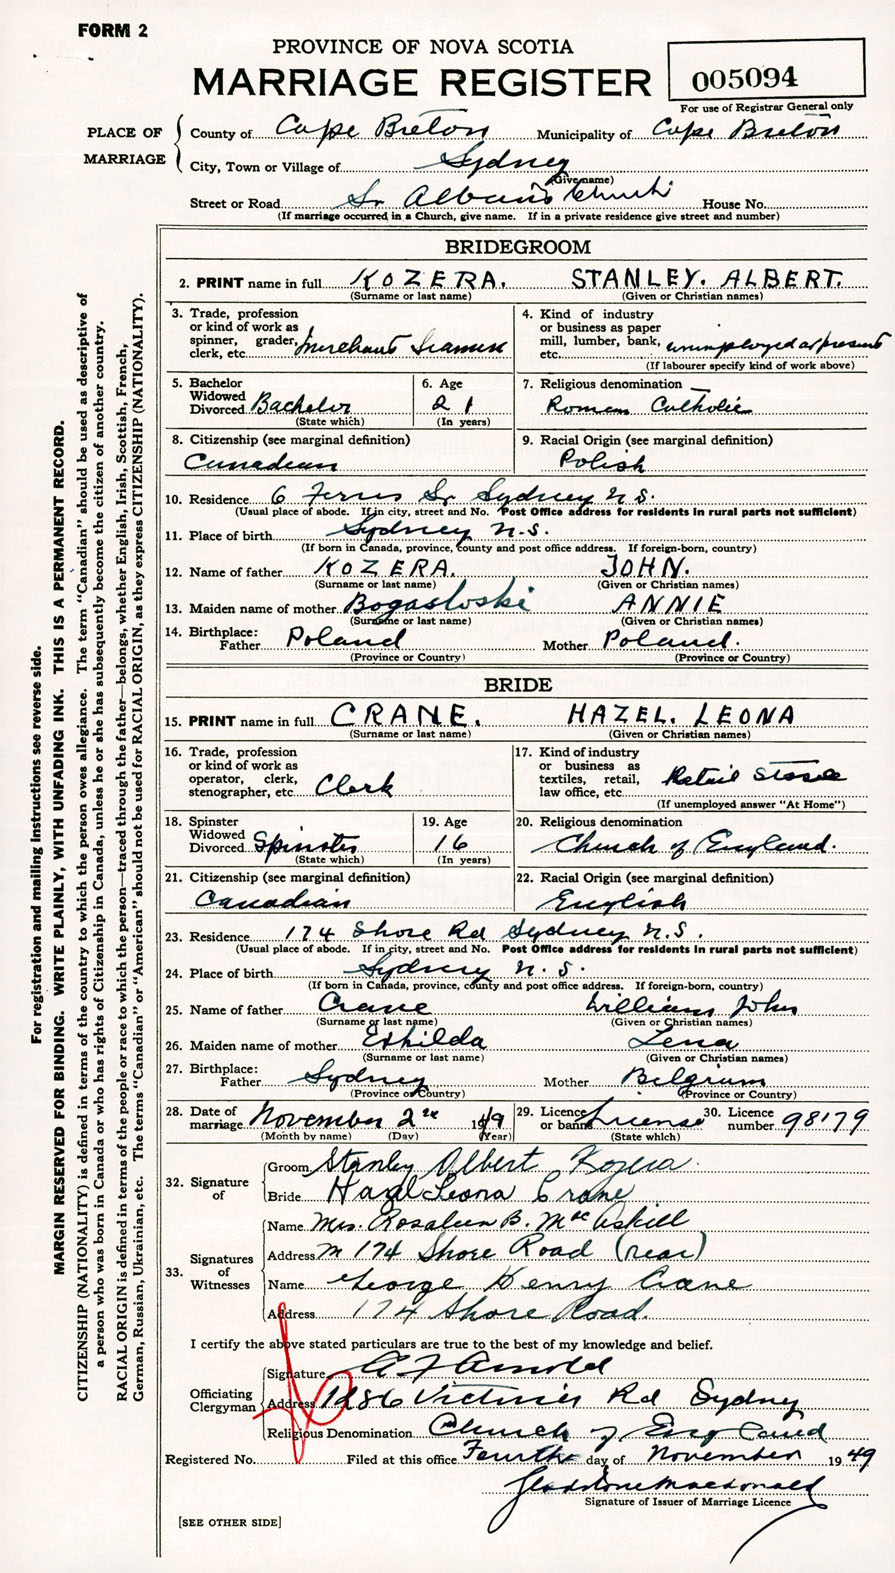 FORM 2
PROVINCE OF NOVA SCOTIA
MARRIAGE REGISTER
005094
For use of Registrar General only
PLACE OF MARRIAGE
County of Cape Breton Municipality of Cape Breton
City, Town or Village of Sydney
(Give name)
Street or Road St Albans Church House No.
(If marriage occurred in a Church, give name. If in a private residence give street and number)
BRIDEGROOM
2. PRINT name in full KOZERA. STANLEY. ALBERT.
(Surname or last name) (Given or Christian names)
3. Trade, profession or kind of work as spinner, grader, clerk, etc. Merchant Seaman
4. Kind of industry or business as paper mill, lumber, bank, etc. unemployed at present
(If labourer specify kind of work above)
5. Bachelor Widowed Divorced Bachelor
(State which)
6. Age 21
(In years)
7. Religious denomination
Roman Catholic
8. Citizenship (see marginal definition)
Canadian
9. Racial Origin (see marginal definition)
Polish
10. Residence 6 Ferris St Sydney N.S.
(Usual place of abode. If in city, street and No. Post Office address for residents in rural parts not sufficient)
11. Place of birth Sydney N.S.
(If born in Canada, province, county and post office address. If foreign-born, country)
12. Name of father KOZERA. JOHN.
(Surname or last name) (Given or Christian names)
13. Maiden name of mother Bogasloski ANNIE
(Surname or last name) (Given or Christian names)
14. Birthplace:
Father Poland Mother Poland.
(Province or Country) (Province or Country)
BRIDE
15. PRINT name in full CRANE. HAZEL. LEONA
(Surname or last name) (Given or Christian names)
16. Trade, profession or kind of work as operator, clerk, stenographer, etc. Clerk
17. Kind of industry or business as textiles, retail, law office, etc. Retail Store
(If unemployed answer "At Home")
18. Spinster Widowed Divorced Spinster
(State which)
19. Age 16
(In years)
20. Religious denomination
Church of England.
21. Citizenship (see marginal definition)
Canadian
22. Racial Origin (see marginal definition)
English
23. Residence 174 Shore Rd Sydney N.S.
(Usual place of abode. If in city, street and No. Post Office address for residents in rural parts not sufficient)
24. Place of birth Sydney N.S.
(If born in Canada, province, county and post office address. If foreign-born, country)
25. Name of father Crane William John
(Surname or last name) (Given or Christian names)
26. Maiden name of mother Lena
(Surname or last name) (Given or Christian names)
27. Birthplace:
Father Sydney Mother Belgium
(Province or Country) (Province or Country)
28. Date of marriage November 2nd 1949
(Month by name) (Day) (Year)
29. Licence or banns License
(State which)
30. Licence number 98179
32. Signature of
Groom Stanley Albert Kozera.
Bride Hazel Leona Crane
33. Signatures of Witnesses
Name Mrs. Rosaleen B. MacAskill
Address 174 Shore Road (rear)
Name George Henry Crane
Address 174 Shore Road.
I certify the above stated particulars are true to the best of my knowledge and belief.
Officiating Clergyman
Signature Arnold
Address Victoria Rd Sydney
Religious Denomination Church of England
Registered No. Filed at this office Fourth day of November 1949
Gladstone Macdonald
Signature of Issuer of Marriage Licence
[SEE OTHER SIDE]
For registration and mailing instructions see reverse side.
MARGIN RESERVED FOR BINDING. WRITE PLAINLY, WITH UNFADING INK. THIS IS A PERMANENT RECORD.
CITIZENSHIP (NATIONALITY) is defined in terms of the country to which the person owes allegiance. The term "Canadian" should be used as descriptive of
a person who was born in Canada or who has rights of Citizenship in Canada, unless he or she has subsequently become the citizen of another country.
RACIAL ORIGIN is defined in terms of the people or race to which the person—traced through the father—belongs, whether English, Irish, Scottish, French,
German, Russian, Ukrainian, etc. The terms "Canadian" or "American" should not be used for RACIAL ORIGIN, as they express CITIZENSHIP (NATIONALITY).